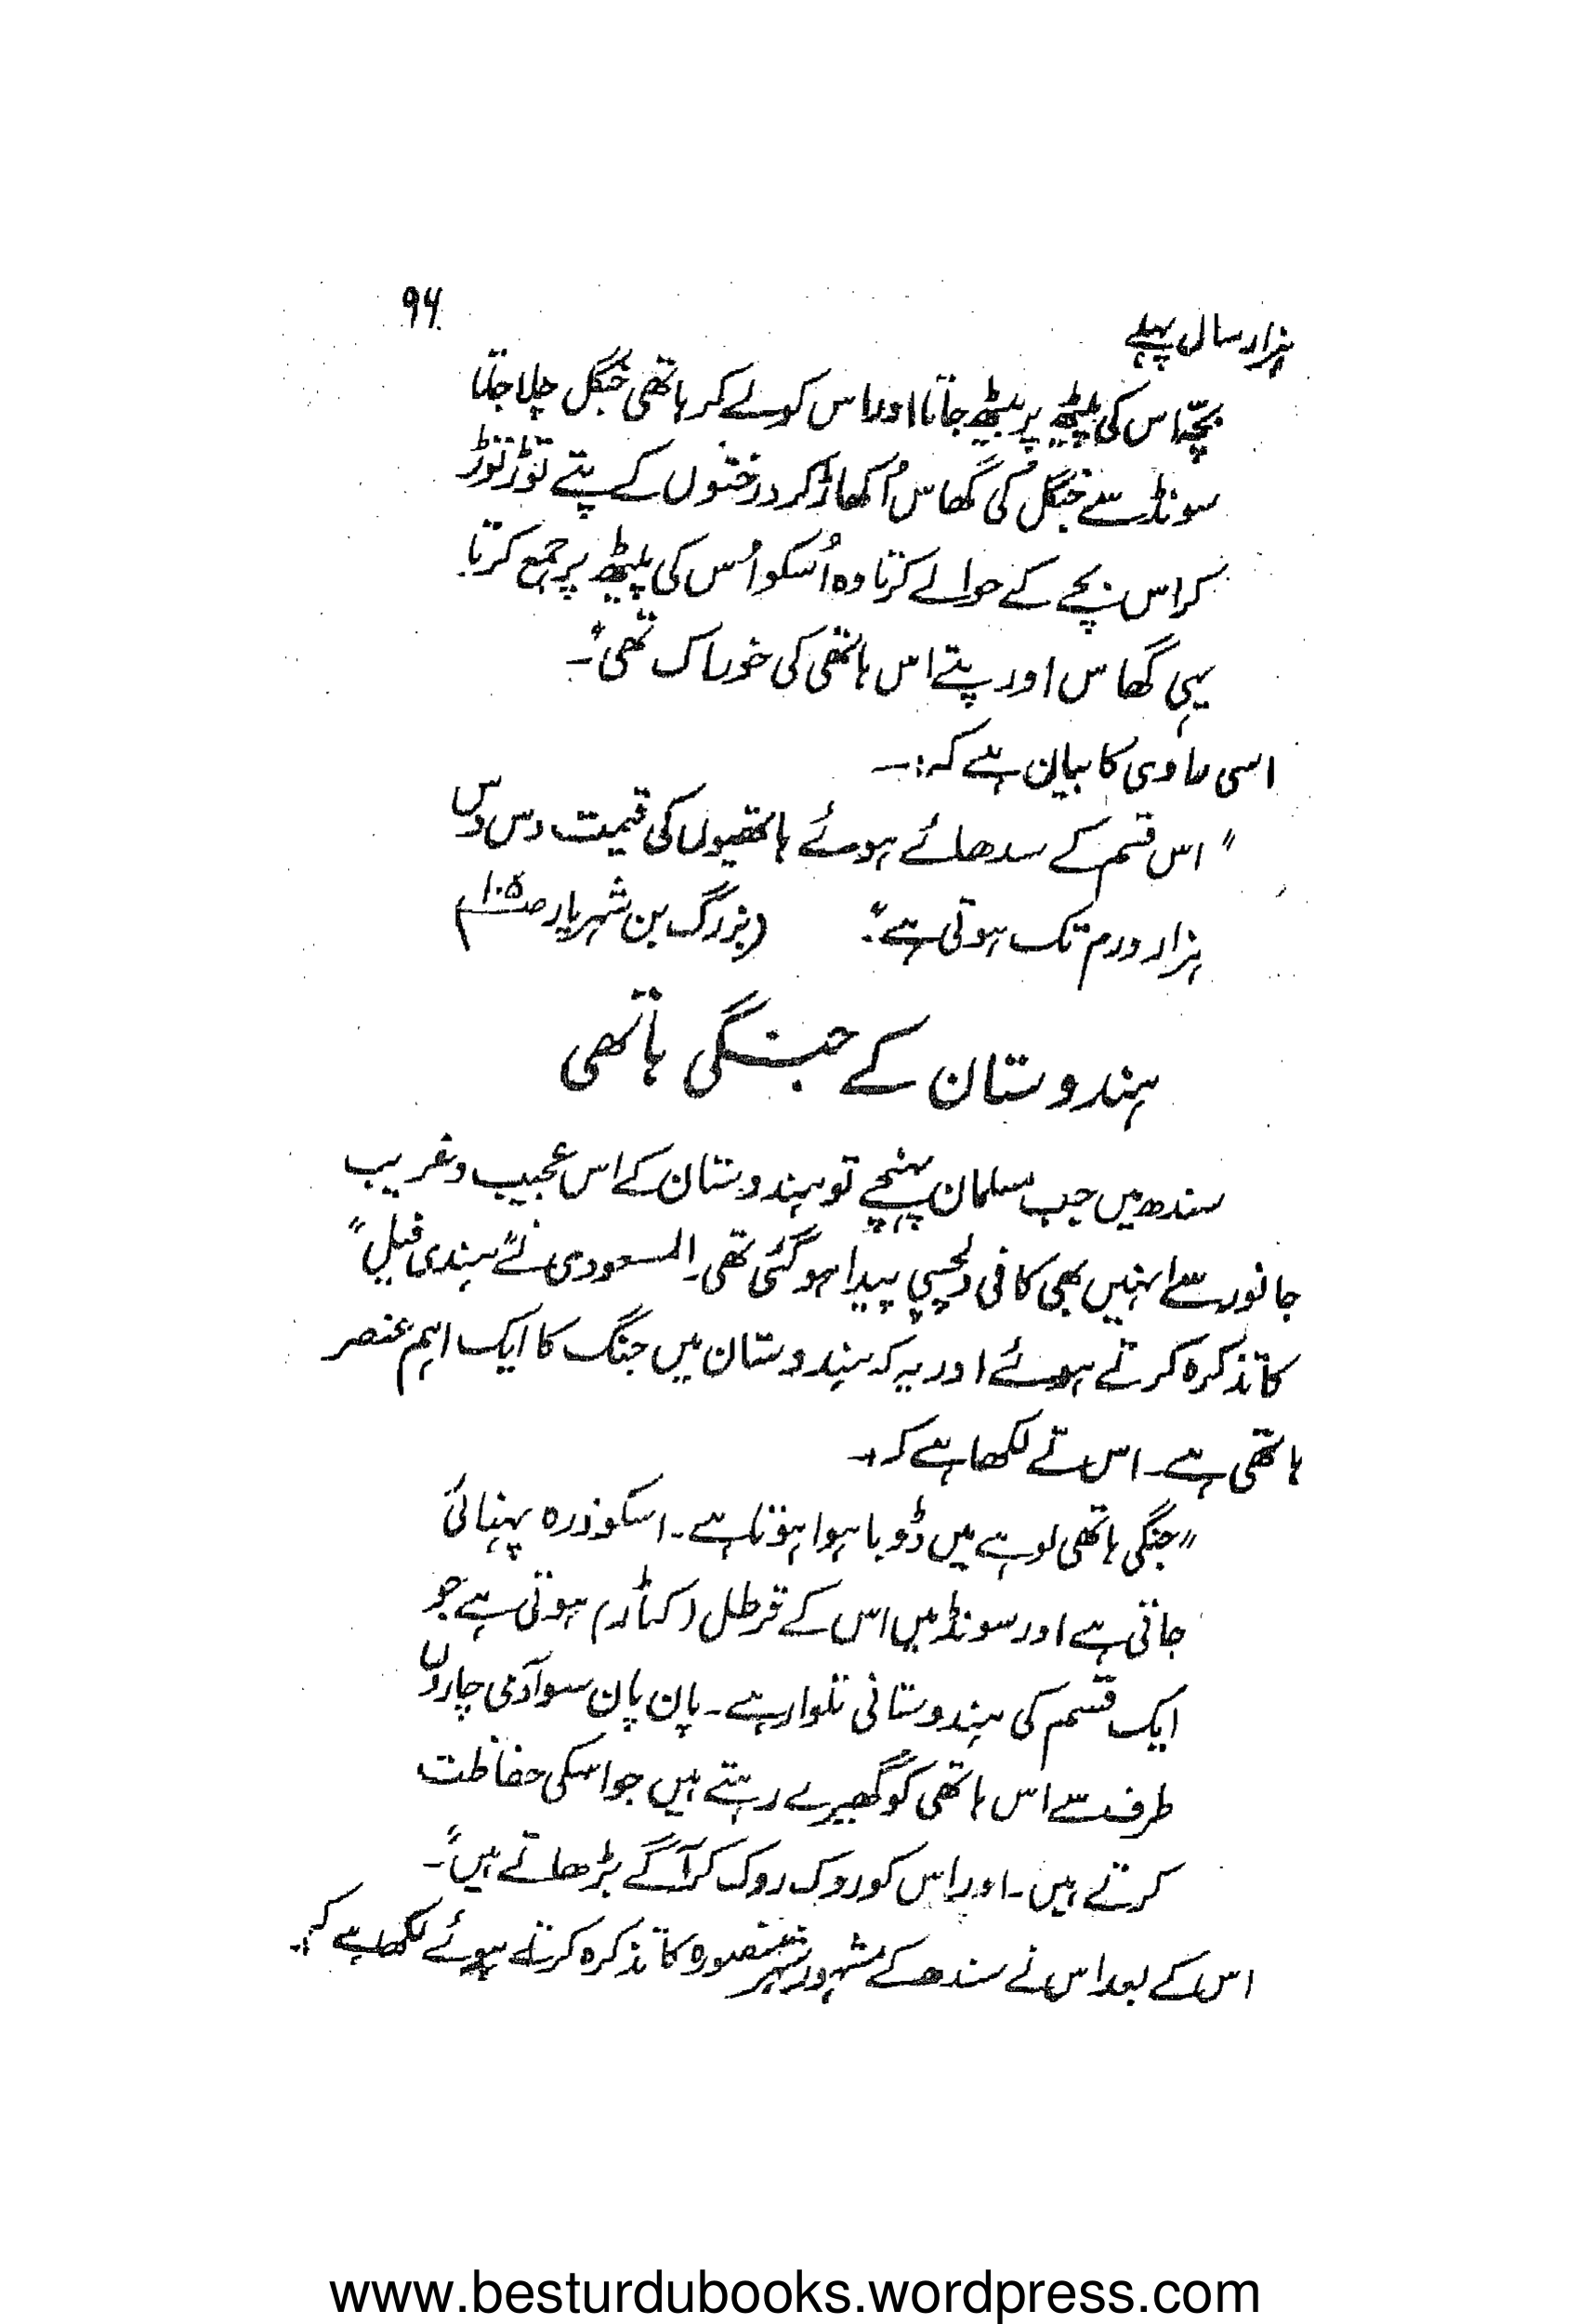 ہزار سال پہلے
۹۶
بچّہ اس کی پیٹھ پر بیٹھ جاتا اور اس کو لے کر ہاتھی جنگل چلا جاتا
سونڈ سے جنگل کی گھاس اُکھاڑ کر درختوں کے پتے توڑ توڑ
کر اس بچے کے حوالے کرتا وہ اُسکو اُس کی پیٹھ پر جمع کرتا
یہی گھاس اور پتے اس ہاتھی کی خوراک تھی"۔
اسی راوی کا بیان ہے کہ:۔
"اس قسم کے سدھائے ہوئے ہاتھیوں کی قیمت دس دس
ہزار درم تک ہوتی ہے"۔ (بزرگ بن شہریار صـ۱۰۵)
ہندوستان کے جنگی ہاتھی
سندھ میں جب مسلمان پہنچے تو ہندوستان کے اس عجیب و غریب
جانور سے انہیں بھی کافی دلچسپی پیدا ہو گئی تھی۔ المسعودی نے "ہندی فیل"
کا تذکرہ کرتے ہوئے اور یہ کہ ہندوستان میں جنگ کا ایک اہم عنصر
ہاتھی ہے۔ اس نے لکھا ہے کہ:۔
"جنگی ہاتھی لوہے میں ڈوبا ہوا ہوتا ہے۔ اسکو زرہ پہنائی
جاتی ہے اور سونڈ میں اس کے قرطل (کٹار) ہوتی ہے جو
ایک قسم کی ہندوستانی تلوار ہے۔ پان پان سو آدمی چاروں
طرف سے اس ہاتھی کو گھیرے رہتے ہیں جو اسکی حفاظت
کرتے ہیں۔ اور اس کو روک روک کر آگے بڑھاتے ہیں"۔
اس کے بعد اس نے سندھ کے مشہور شہر منصورہ کا تذکرہ کرتے ہوئے لکھا ہے کہ:۔
www.besturdubooks.wordpress.com